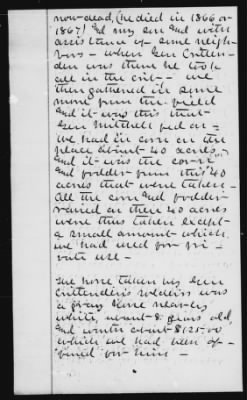 now dead, (he died in 1866 or
1867) and my son and with
assistance of some neigh-
bors - when Gen Critten-
den was there he took
all in the crib - we
then gathered in some
more from the field
and it was this that
Gen Mitchell fed on -
we had in corn on the
place about 40 acres,
and it was the corn
and fodder from this 40
acres that were taken -
All the corn and fodder
raised on these 40 acres
were thus taken except
a small amount which
we had used for pri-
vate use -
The horse taken by Gen
Crittenden's soldiers was
a gray horse nearly
white, about 8 years old,
and worth about $125.00
which we had been of-
fered for him -